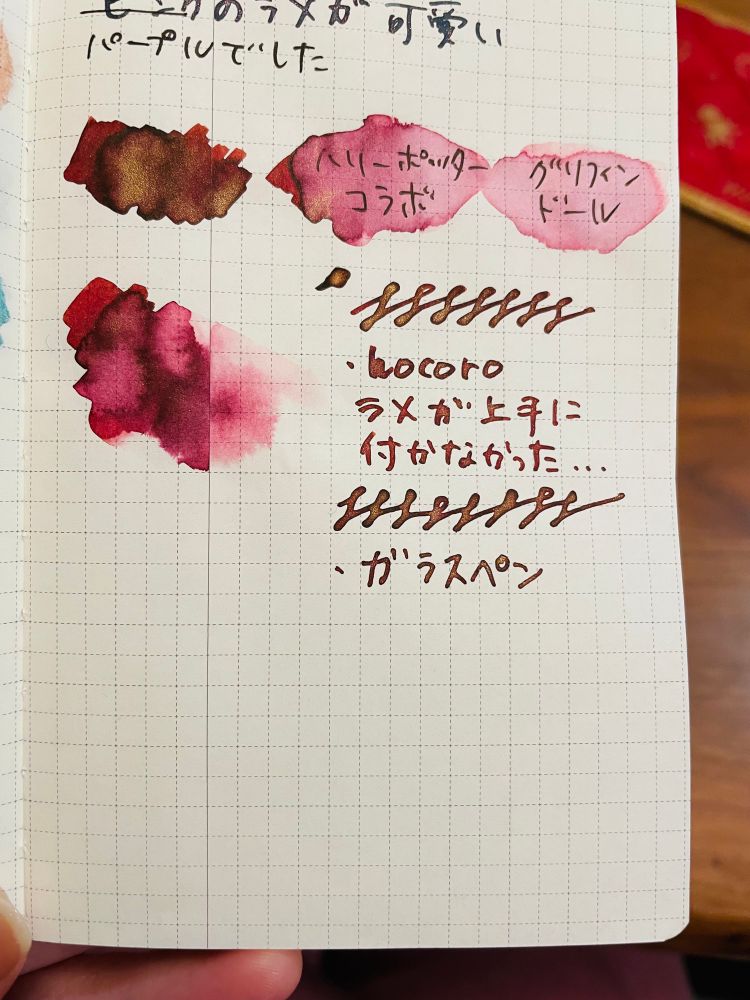 ピンクのラメが可愛い
パープルでした
ハリーポッター
コラボ
グリフィン
ドール
・hocoro
ラメが上手に
付かなかった...
・ガラスペン